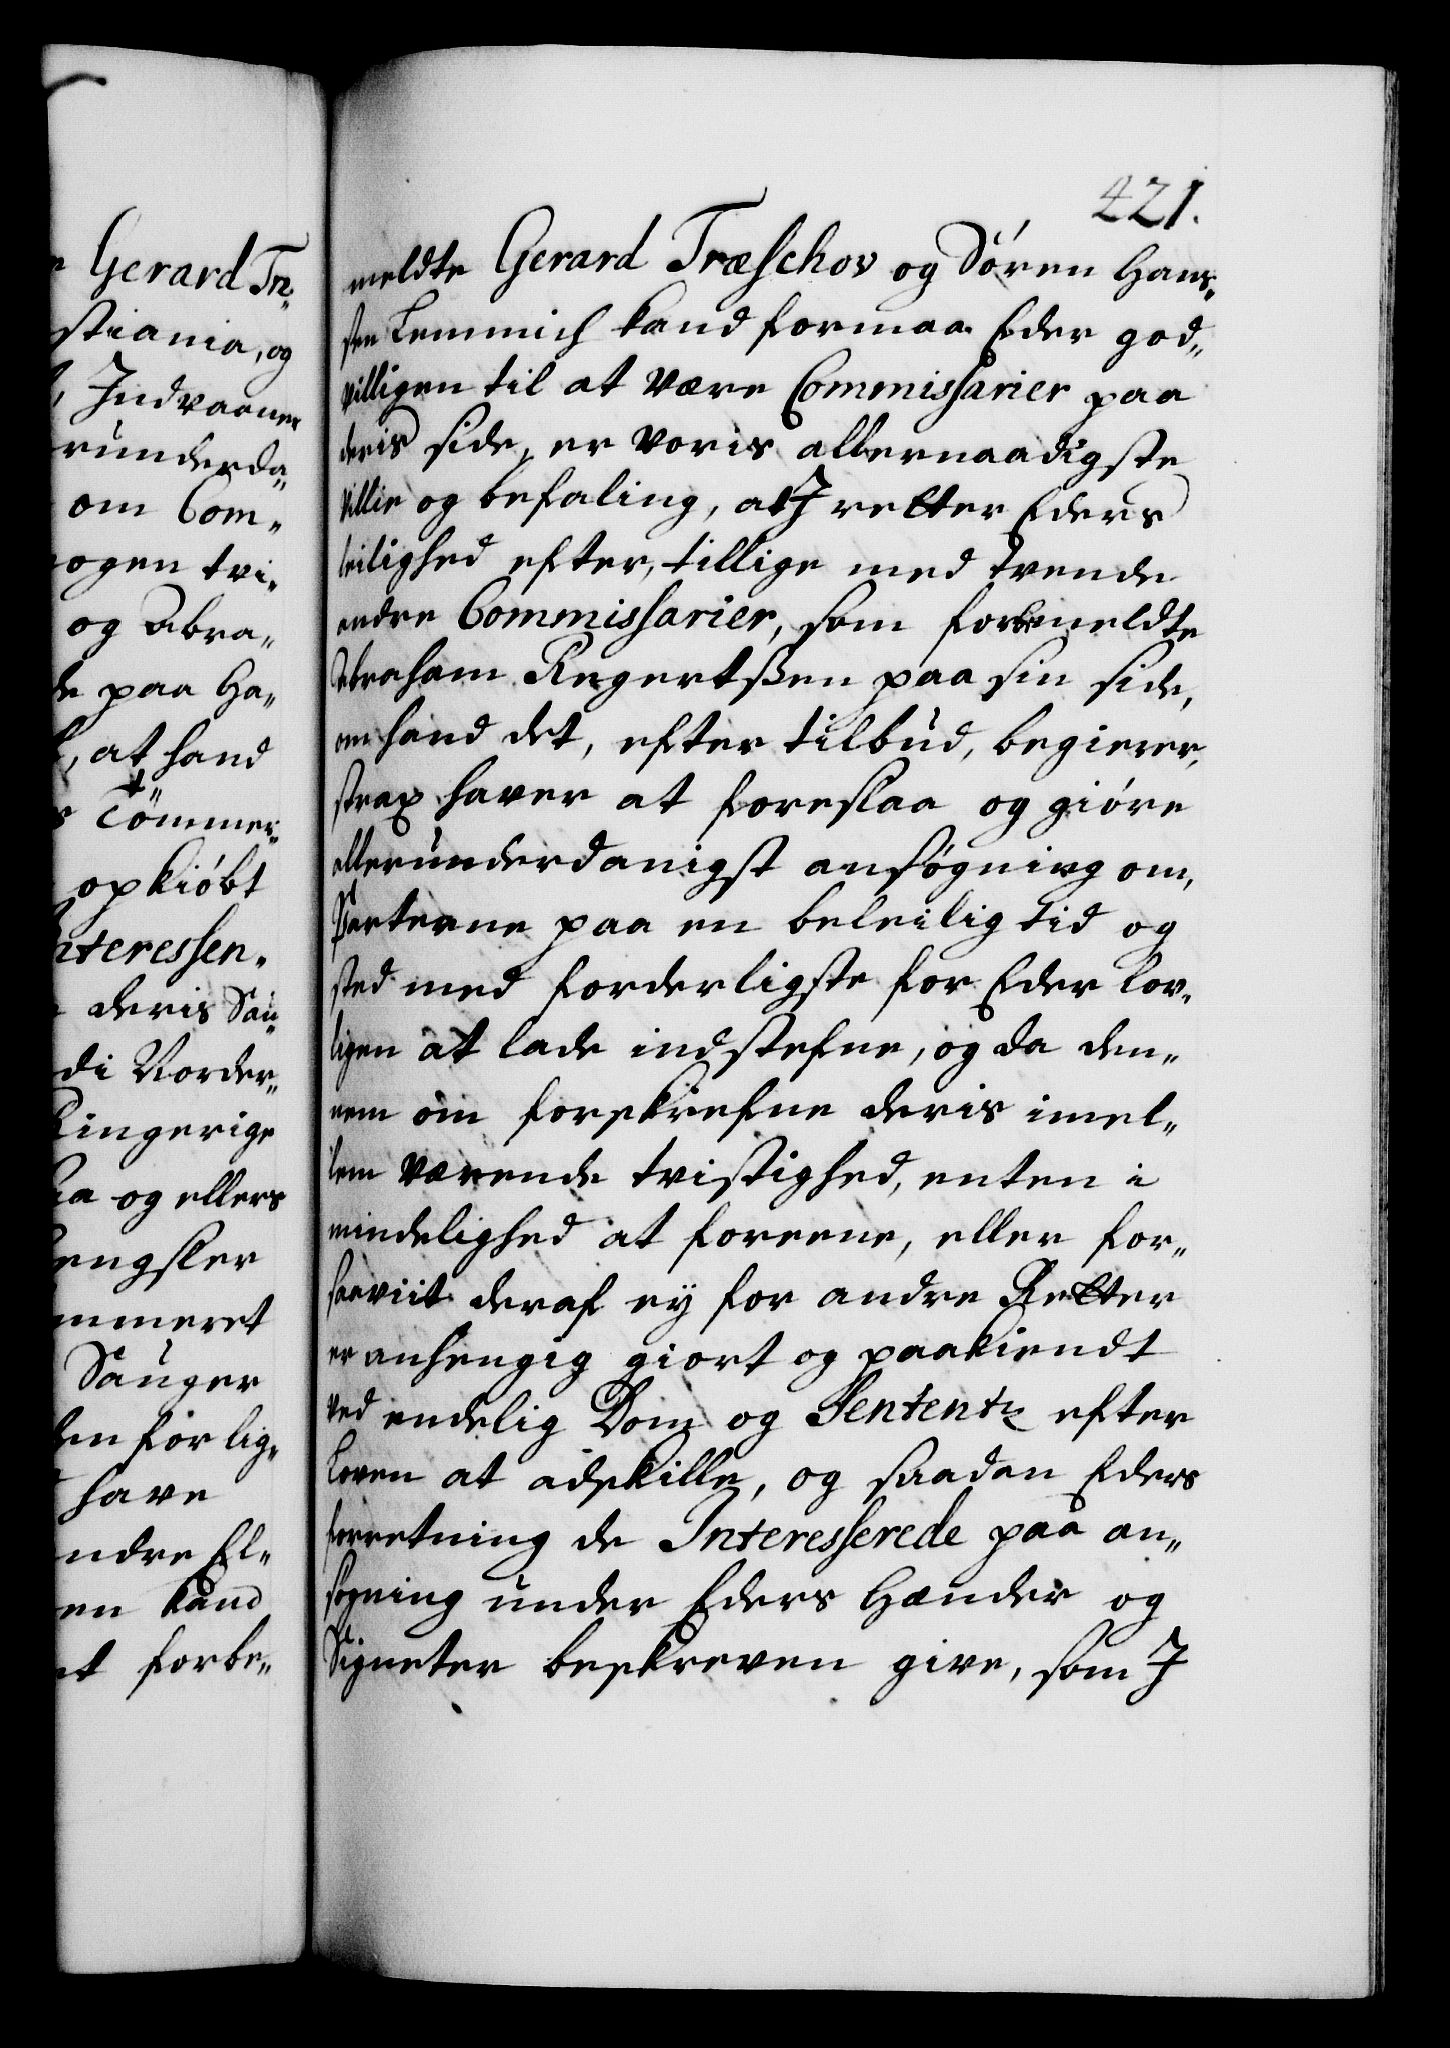 Gerard Tre„
stiania, og
Indvaaner
runderda„
om Com„
ogen tvi„
og Abra„
de paa Ha„
, at hand
Tömmer„
opkiöbt
nteressen„
deris Sau„
di Norder„
Ringerige
aa og ellers
engsler
mmeret
Sauger
den for lig„
have
ndre El„
en kand
et forbe„
421.
meldte Gerard Træschov og Sören Hans„
sen Lemmich kand formaa Eder god„
villigen til at være Commissarier paa
deris side, er voris allernaadigste
villie og befaling, at I retter Eders
leilighed efter, tillige med tvende
andre Commissarier, som forbemeldte
Abraham Regertssen paa sin side,
om hand det, efter tilbud, begierer,
strax haver at foreslaa og giöre
allerunderdanigst ansögning om,
Parterne paa en beleilig tid og
sted med forderligste for Eder lov„
ligen at lade indstefne, og da den„
nem om forskrefne deris imel„
lem værende tvistighed, enten i
mindelighed at foreene, eller for„
saaviit deraf ey for andre Retter
er anhengig giort og paakiendt
ved endelig Dom og Sententz efter
Loven at adskille, og saadan Eders
forretning de Interesserede paa an„
søgning under Eders Hænder og
Signeter beskreven give, som I